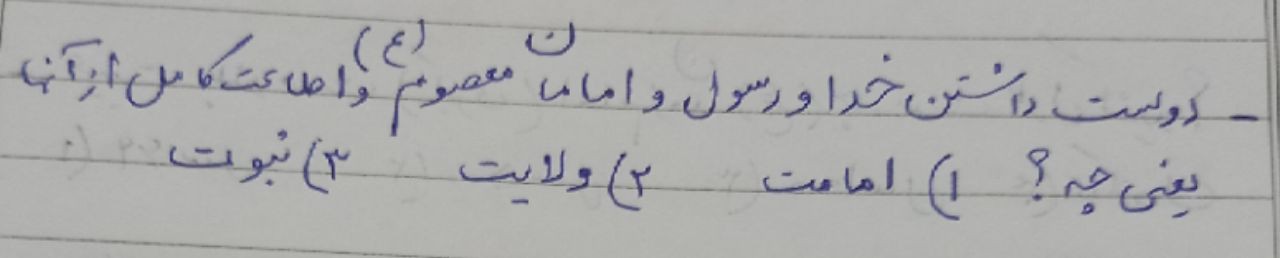 - دوست داشتن خدا و رسول و امامان معصوم (ع) و اطاعت کامل از آنها
یعنی چه؟ ۱) امامت ۲) ولایت ۳) نبوت